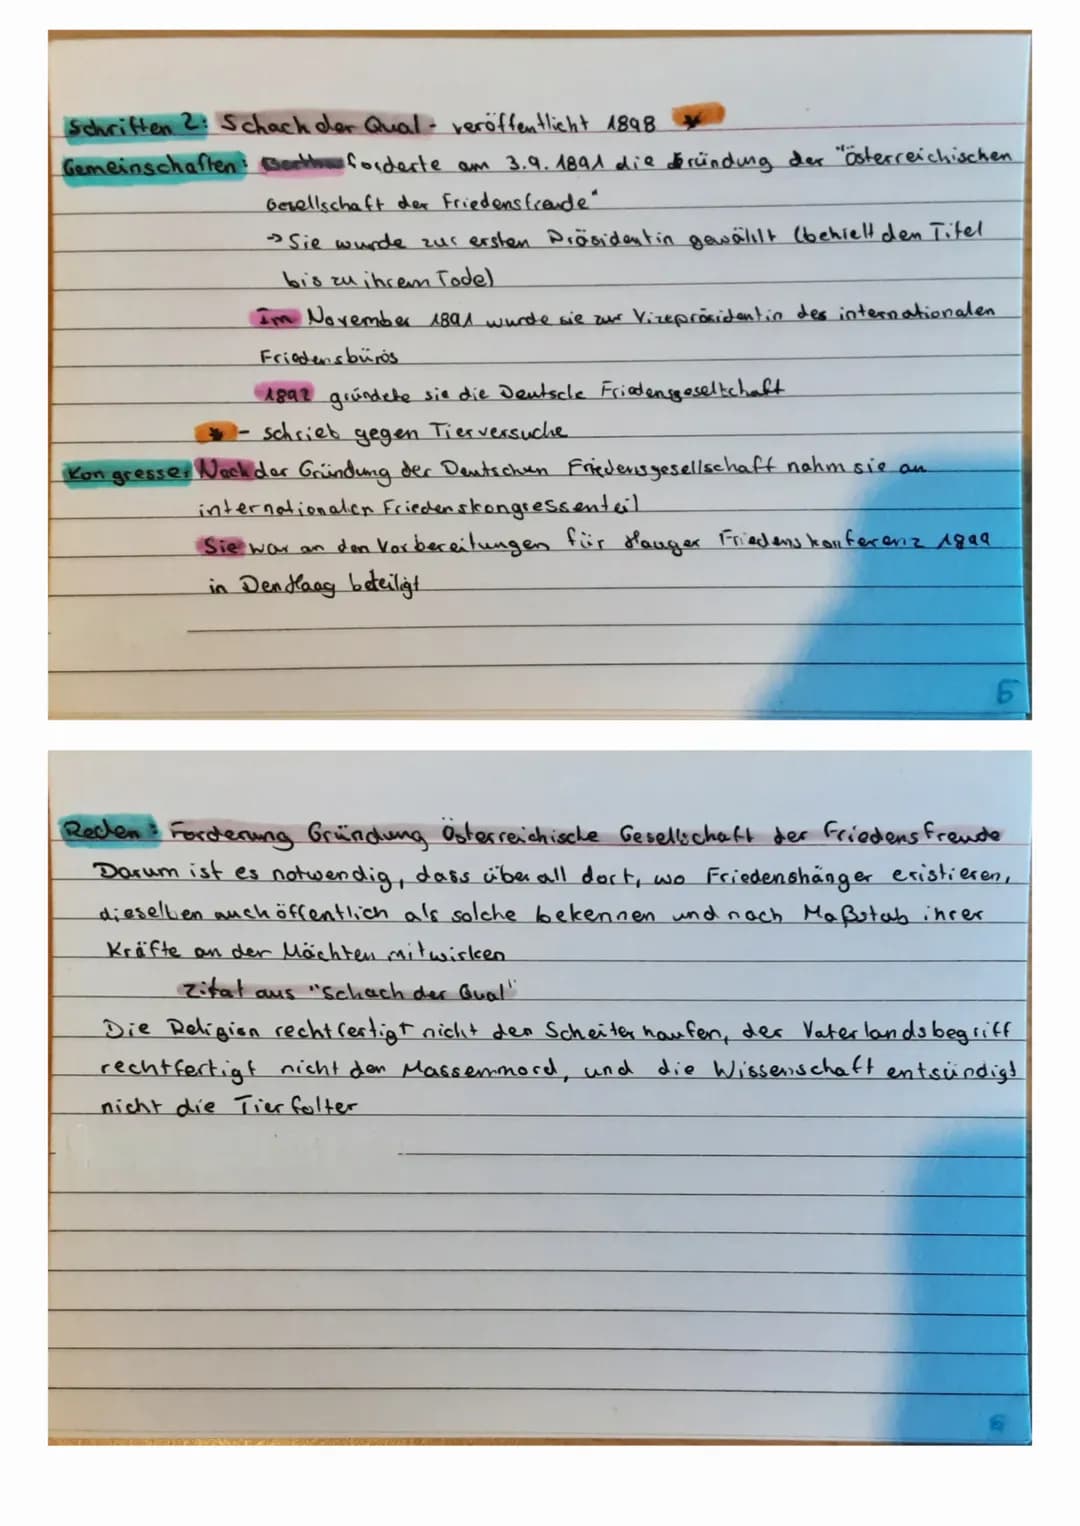 Schriften 2: Schach der Qual - veröffentlicht 1898 *
Gemeinschaften: forderte am 3.9.1891 die Gründung der "Österreichischen
Gesellschaft der Friedensfreude"
→ Sie wurde zur ersten Präsidentin gewählt (behielt den Titel
bis zu ihrem Tode)
Im November 1891 wurde sie zur Vizepräsidentin des internationalen
Friedensbüros
1892 gründete sie die Deutsche Friedensgesellschaft
* - schrieb gegen Tierversuche
Kongresse: Nach der Gründung der Deutschen Friedensgesellschaft nahm sie an
internationalen Friedenskongressen teil
Sie war an den Vorbereitungen für Hauger Friedenskonferenz 1899
in Den Haag beteiligt
5
Reden: Forderung Gründung Österreichische Gesellschaft der Friedensfreude
Darum ist es notwendig, dass überall dort, wo Friedenshänger existieren,
dieselben auch öffentlich als solche bekennen und nach Maßstab ihrer
Kräfte an der Mächten mitwirken
Zitat aus "Schach der Qual"
Die Religion rechtfertigt nicht den Scheiterhaufen, der Vaterlandsbegriff
rechtfertigt nicht den Massenmord, und die Wissenschaft entsündigt
nicht die Tierfolter
6